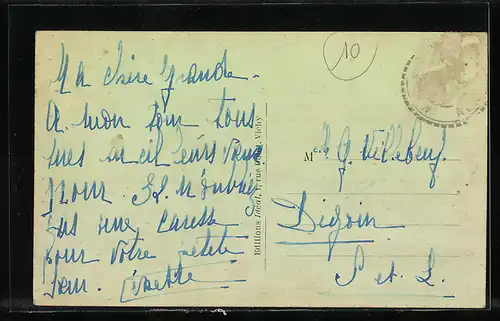 10
Ma chère grande
A mon tour tous
mes meilleurs vœux
pour 32. N'oubliez
pas une caresse
pour votre petite
sœur. Ginette
Editions Idéal, rue Vichy
G. Villebeuf
Digoin
S et L.